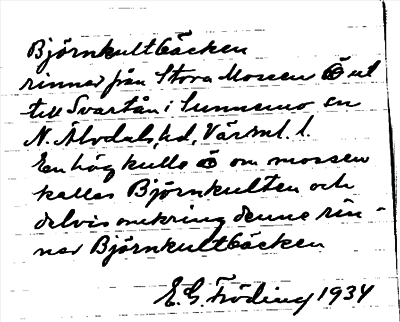 Björnkultbäcken
rinner från Stora Mossen Ö ut
till Svartån i Sunnemo en
N. Älvdals hd, Värml. l.
En hög kulle Ö om mossen
kallas Björnkulten och
delvis omkring denne rin-
ner Björnkultbäcken
E. G. Fröding 1934